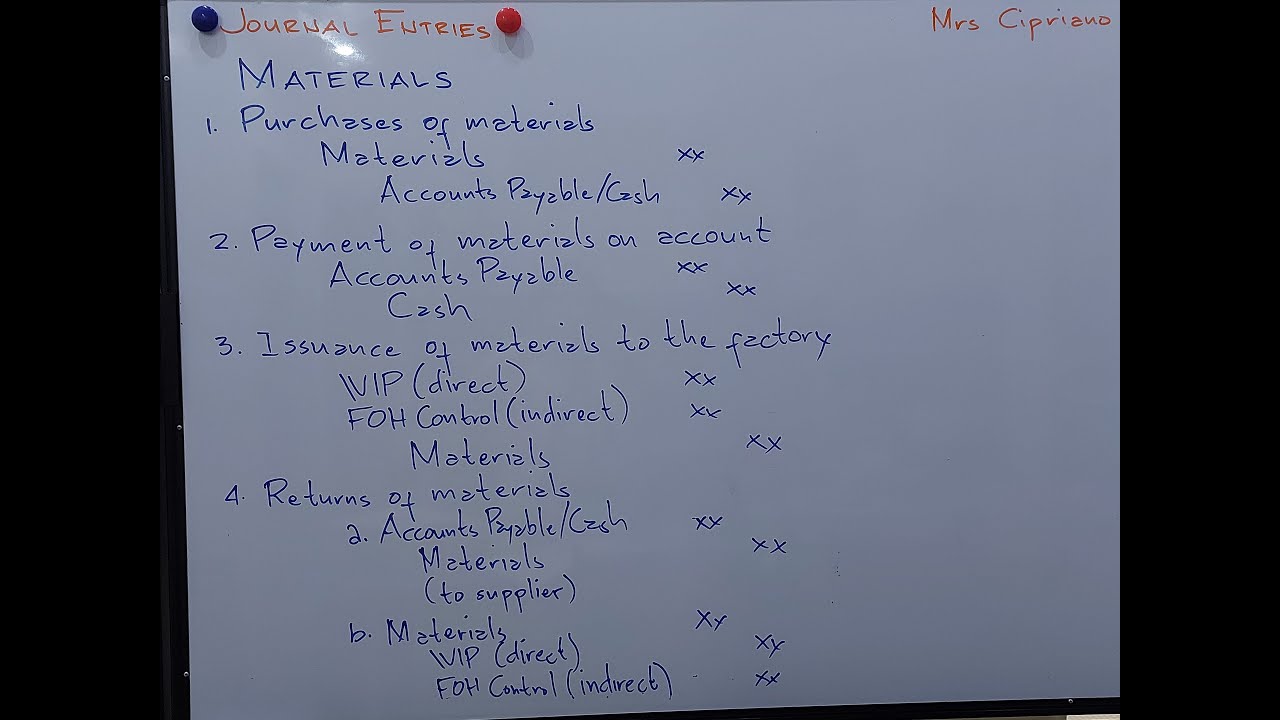 JOURNAL ENTRIES
Mrs Cipriano
MATERIALS
1. Purchases of materials
Materials xx
Accounts Payable/Cash xx
2. Payment of materials on account
Accounts Payable xx
Cash xx
3. Issuance of materials to the factory
WIP (direct) xx
FOH Control (indirect) xx
Materials xx
4. Returns of materials
a. Accounts Payable/Cash xx
Materials xx
(to supplier)
b. Materials xx
WIP (direct) xx
FOH Control (indirect) xx